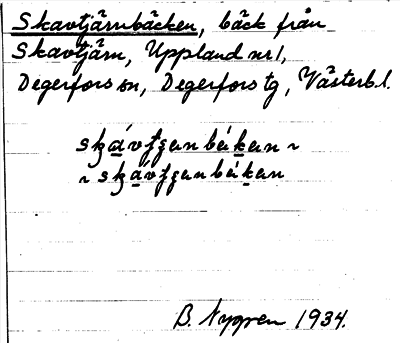 Skavtjärnbäcken, bäck från
Skavtjärn, Uppland nr 1,
Degerfors sn, Degerfors tg, Västerb. l.
skávtjanbákan ~
~ skávtjanbákan
B. Nygren 1934.